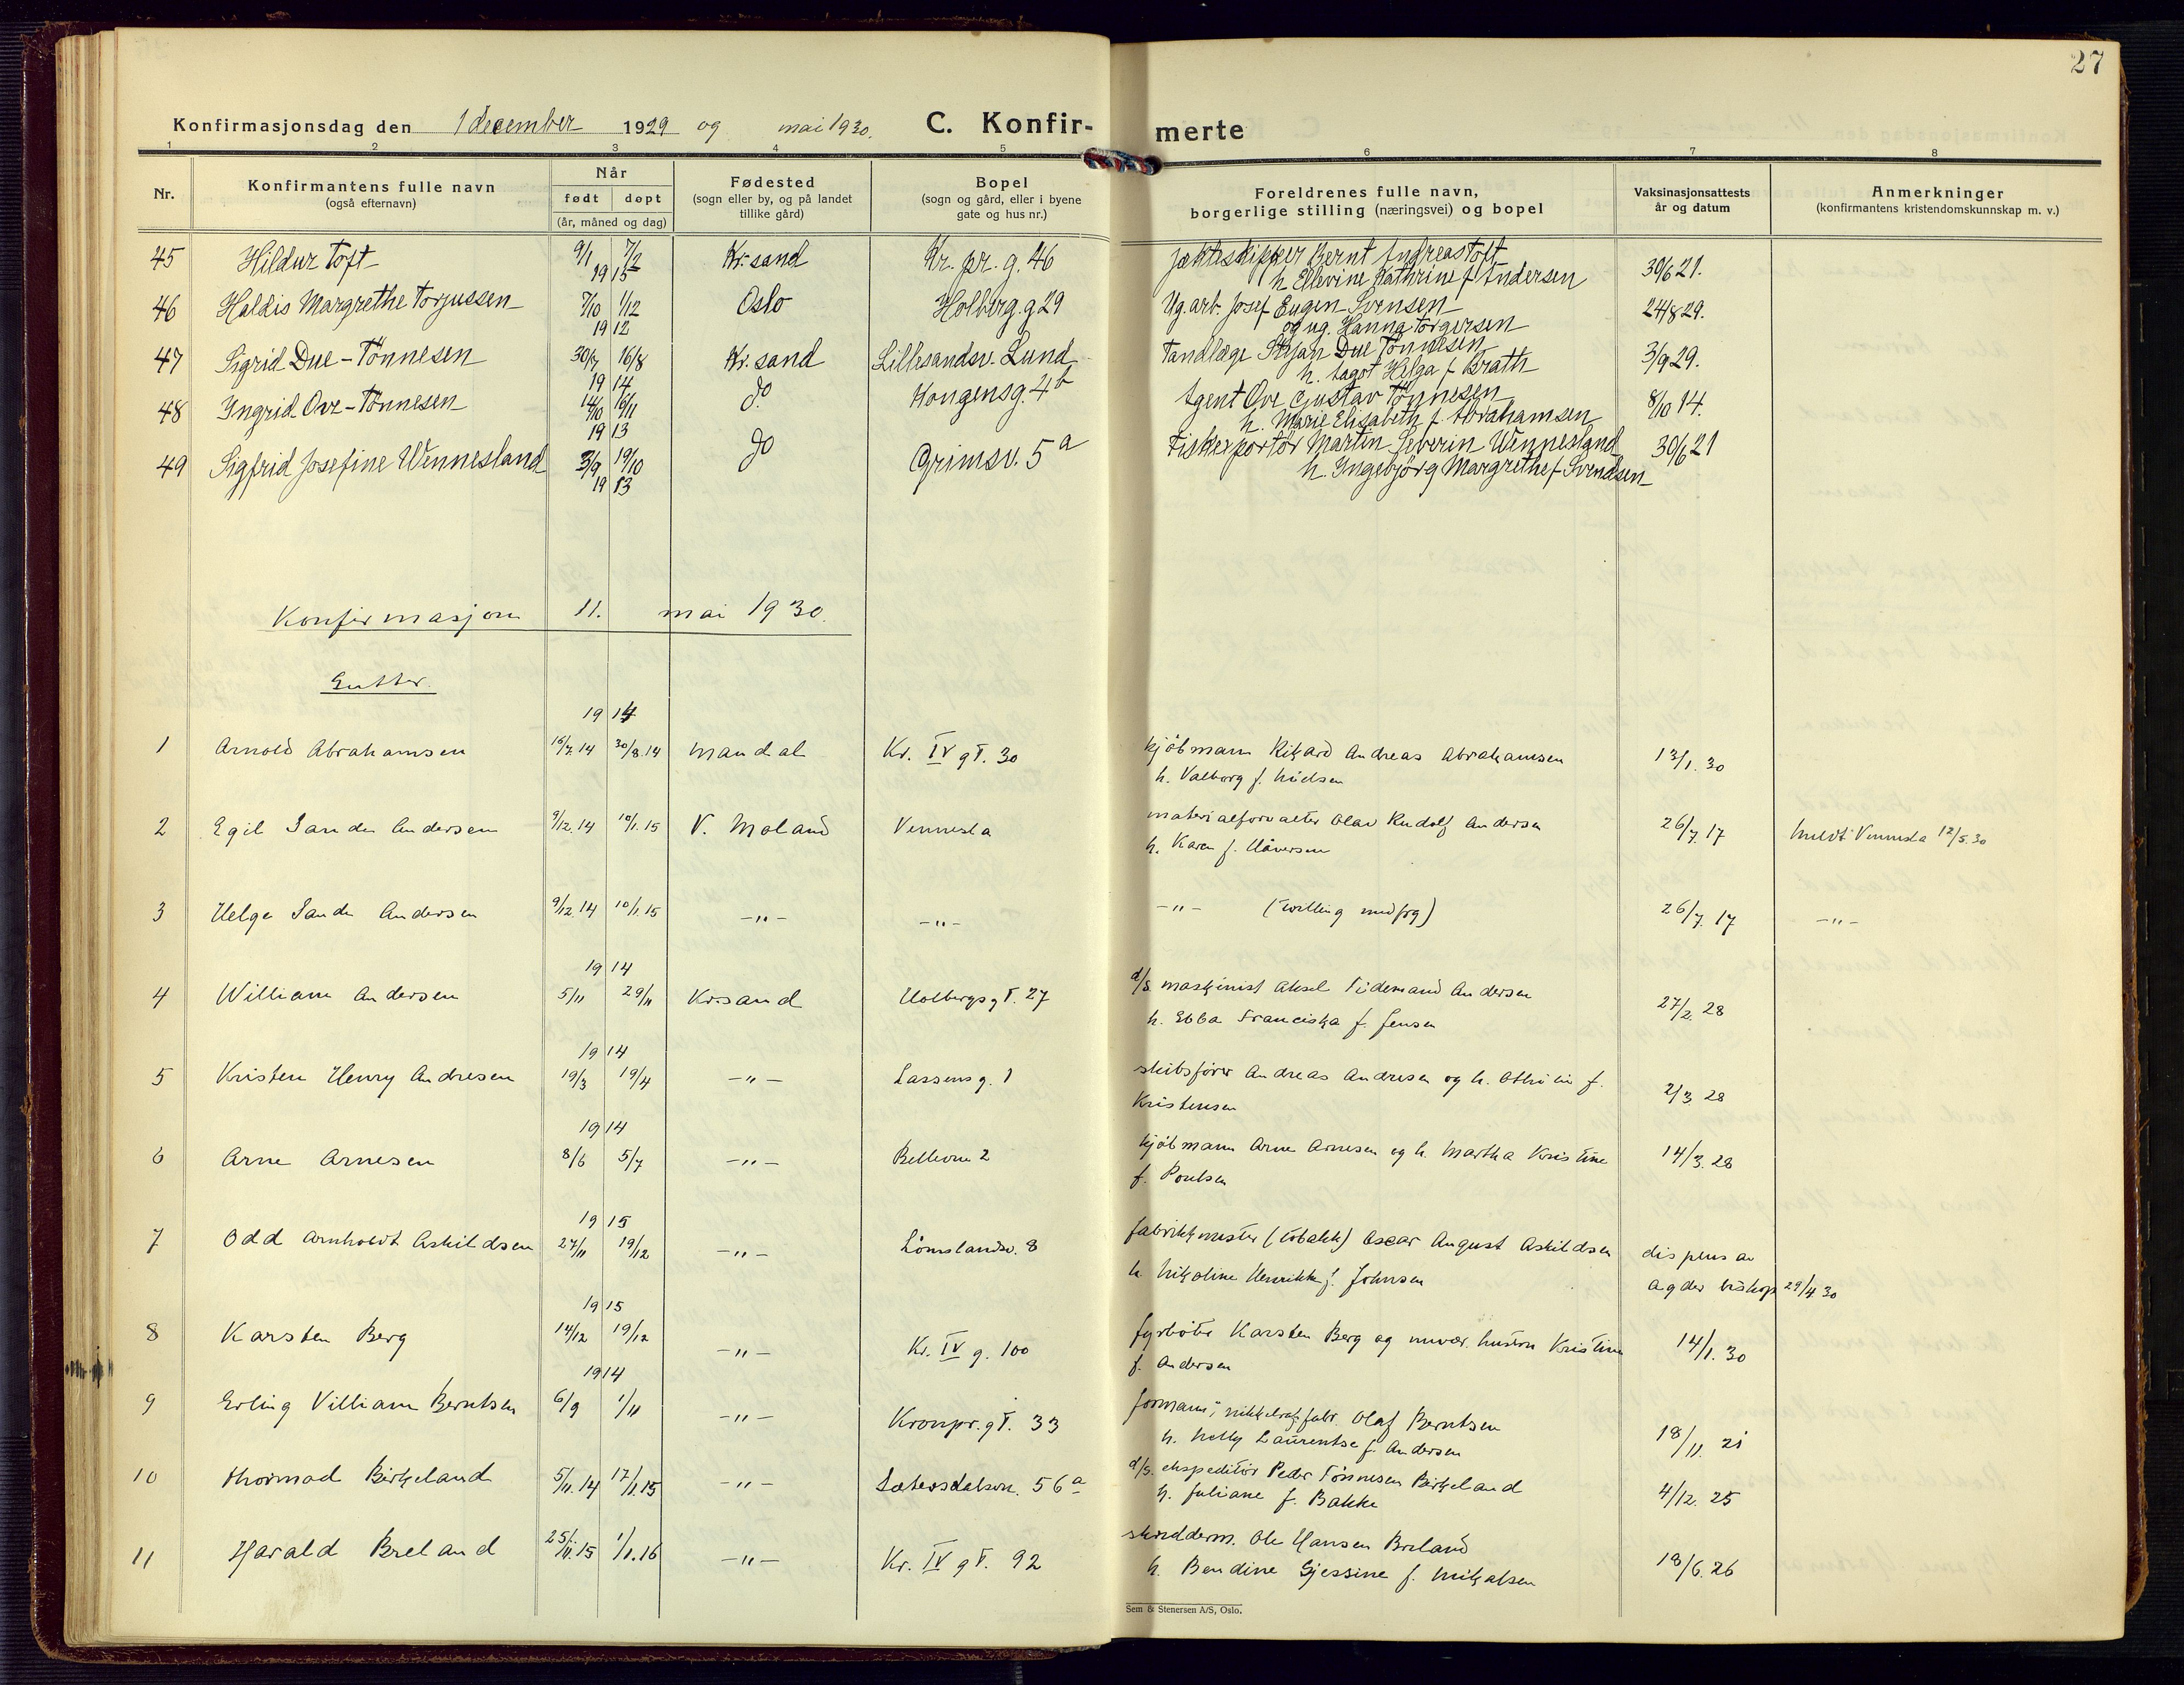 27
Konfirmasjonsdag den 1 december 1929 og mai 1930. C. Konfir- merte
1 2 3 4 5 6 7 8
Nr. Konfirmantens fulle navn (også efternavn) Når født døpt (år, måned og dag) Fødested (sogn eller by, og på landet tillike gård) Bopel (sogn og gård, eller i byene gate og hus nr.) Foreldrenes fulle navn, borgerlige stilling (næringsvei) og bopel Vaksinasjonsattests år og datum Anmerkninger (konfirmantens kristendomskunnskap m. v.)
45 Hildur Toft 9/1 7/2 1915 Kr.sand Kr. pr. g. 46 Jakteskipper Bernt Andreas Toft
h. Ellevine Kathrine f. Andersen 30/6 21.
46 Haldis Margrethe Torjussen 7/10 1/12 1912 Oslo Holberg.g 29 Ug. arb. Josef Eugen Svensen
og ug. Hanna Torgersen 24/8 29.
47 Sigrid Due-Tönnesen 30/7 16/8 1914 Kr.sand Lillesandsv. Lund Tandlæge Due Tönnesen
h. Aagot Helga f. Brath 3/9 29.
48 Ingrid Ove-Tönnesen 14/10 16/11 1913 do Kongensg. 4b Agent Ove Gustav Tönnesen
h. Marie Elisabeth f. Abrahamsen 8/10 14.
49 Sigfrid Josefine Wennesland 3/9 19/10 1913 do Grimsv. 5a Fiskexportör Martin Severin Wennesland
h. Ingebjörg Margrethe f. Svendsen 30/6 21
Konfirmasjon 11. mai 1930.
Gutter.
1914
1 Arnold Abrahamsen 16/7.14 30/8.14 Mandal Kr. IV gt. 30 kjöbmann Rikard Andreas Abrahamsen
h. Valborg f. Nielsen 13/1. 30
2 Egil Sandu Andersen 9/12.14 10/1.15 V. Moland Vennesla materialforvalter Olav Rudolf Andersen
h. Karen f. Håversen 26/7. 17 meldt Vennesla 12/5.30
3 Helge Sandu Andersen 9/12.14 10/1.15 -"- -"- -"- (tvilling med forg) 26/7. 17 -"-
1914
4 William Andersen 5/11 29/11 Kr.sand Holbergsgt. 27 d/s. maskinist Aksel Tidemand Andersen
h. Ebba Franciska f. Jensen 27/2. 28
1914
5 Kristen Henry Andresen 19/3 19/4 -"- Lassensg. 1 skibsförer Andreas Andresen og h. Othilie f.
Kristensen 2/3. 28
1914
6 Arne Arnesen 8/6 5/7 -"- Bellevue 2 kjöbmann Arne Arnesen og h. Martha Kristine
f. Poulsen 14/3. 28
1915
7 Odd Arnholdt Askildsen 27/11 19/12 -"- Lömslandsv. 8 fabrikkmester (tobakk) Oscar August Askildsen
h. Nikoline Henrikke f. Johnsen dispens av
Agder biskop 29/4. 30
1915
8 Karsten Berg 14/12 19/12 -"- Kr. IV g. 100 fyrböter Karsten Berg og nuvær. hustru Kristine
f. Andersen 14/1. 30
1914
9 Erling Villiam Berntsen 6/9 1/11 -"- Kronpr.gt. 33 formann, nikkelrafffabr. Olaf Berntsen
h. Nelly Laurentse f. Andersen 18/11. 21
10 Thormod Birkeland 5/11.14 17/1.15 -"- Sætersdalsv. 56a d/s. ekspeditör Peder Tönnesen Birkeland
h. Juliane f. Bakke 4/12. 25
11 Harald Breland 25/11.15 1/1.16 -"- Kr. IV gt. 92 skredderm. Ole Hansen Breland
h. Bendine Gjessine f. Mikalsen 18/6. 26
Sem & Stenersen A/S, Oslo.